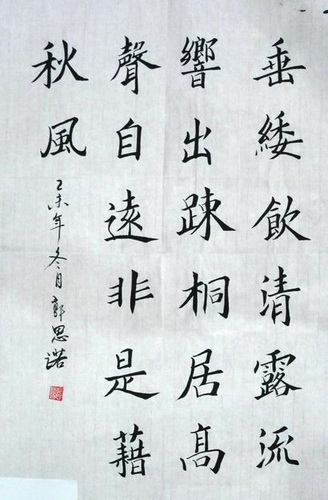 垂緌飲清露流
響出踈桐居高
聲自遠非是藉
秋風
乙未年冬月郭思諾